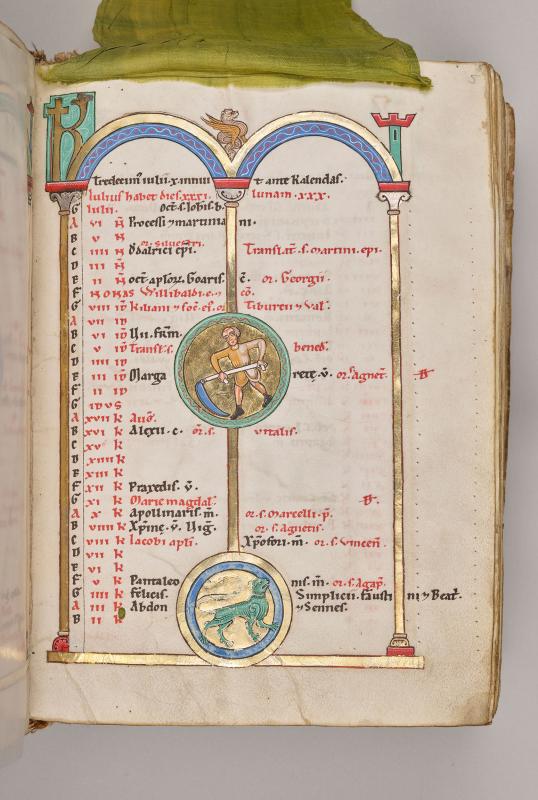 KL
5
Tredecim⁹ iulii·x·innuit ante Kalendas.
Iulius habet dies·xxxi· lunam·xxx·
G Iulii. Oct̄·s·Iohis·b·
A vi N̄ Processi ⁊ martiniani.
B v N̄
or̄·siluestri.
C iiii N̄ Odalrici ep̄i. Translat̄·s·martini·epi·
D iii N̄
E ii N̄ Oct̄·ap̄lor̄·Goaris·c̄· or̄·Georgii·
F NONAS Willibaldi·e· ⁊ cō.
G viii id̄ Kiliani ⁊ soc̄·ei⁹·or̄ Tiburcii ⁊ Val̄·
A vii id̄
B vi id̄ Vii·fr̄m·
C v id̄ Transl̄·s· bened̄·
D iiii id̄
E iii id̄ Margarete·v̄· or̄·s·Agnet̄·
F ii id̄
G idVS
A xvii k Auḡ·
B xvi k Alexii·c· or̄·s· vitalis·
C xv k
D xiiii k
E xiii k
F xii k Praxedis·v̄·
G xi k Marie magdal̄·
A x k Apollinaris·m̄· or̄·s·Marcelli·p̄·
B viiii k Xpine·v̄· Viḡ· or̄·s·Agnetis·
C viii k Iacobi apl̄i· Xpofori·m̄· or̄·s·vincen̄·
D vii k
E vi k
F v k Pantaleonis·m̄· or̄·s·Agap̄·
G iiii k felicis· Simplicii·faustini ⁊ Beat̄·
A iii k Abdon ⁊ Sennes·
B ii k